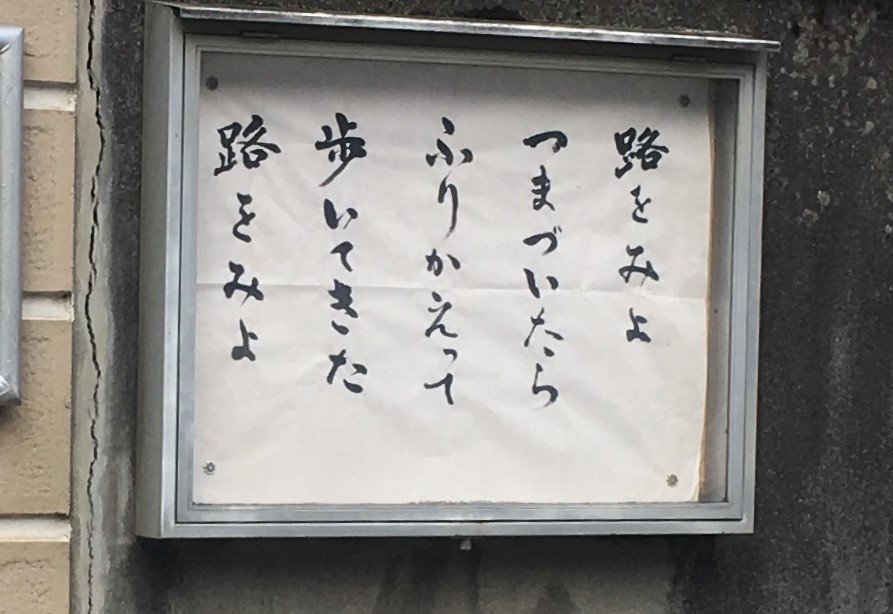 路をみよ
つまづいたら
ふりかえって
歩いてきた
路をみよ